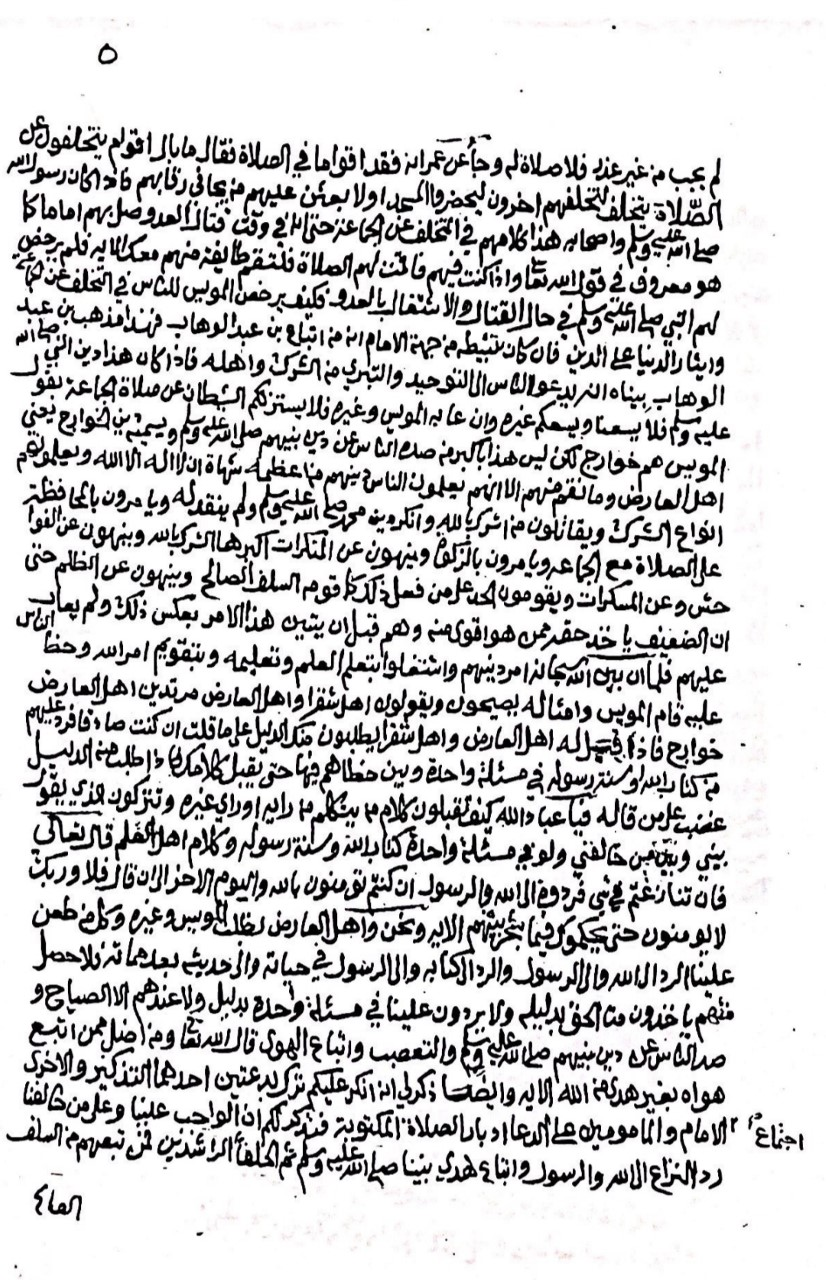 ٥
لم يجب من غير عذر فلا صلاة له وجاء عن عمر انه فقد اقواما في الصلاة فقال ما بال اقوام يتخلفون عن
الصلاة يتخلف لتخلفهم اخرون ليحضروا المسجد او لا بعثن عليهم من يجافي رقابهم فاذا كان رسول الله
صلى الله عليه وسلم واصحابه هذا كلامهم في التخلف عن الجماعة حتى في وقت قتال العدو صل بهم اماما كا
هو معروف في قول الله تعا واذا كنت فيهم فاقمت لهم الصلاة فلتقم طايفة منهم معك الايه فلم يرخص
لهم النبي صلى الله عليه وسلم في حال القتال والاشتغال بالعدو فكيف يرخص المويس للناس في التخلف عن
وايثار الدنيا على الدين فان كان تثبيطه من جهة الامام انه من اتباع بن عبد الوهاب فهذا مذهب بن عبد
الوهاب بيناه انه يدعو الناس الى التوحيد والتبري من الشرك واهله فاذا كان هذا دين النبي صلى الله
عليه وسلم فلا يسعنا ويسعكم غيره وان عابه المويس وغيره فلا يستزلكم الشيطان عن صلاة الجماعة بقول
المويس هم خوارج لكن ليس هذا باكبر من صده الناس عن دين نبيهم صلى الله عليه وسلم ويسميه دين الخوارج يعني
اهل العارض وما نقم منهم الا انهم يعلمون الناس دينهم من اعظمه شهاة ان لا اله الا الله ويعلمونهم
انواع الشرك ويقاتلون من اشرك بالله وانكر دين محمد صلى الله عليه وسلم ولم ينقد له ويامرون بالمحافظة
على الصلاة مع الجماعه ويامرون بالزكوة وينهون عن المنكرات اكبرها الشرك بالله وينهون عن الفوا
حش وعن المسكرات ويقومون الحد على من فعل ذلك كما قومه السلف الصالح وينهون عن الظلم حتى
ان الضعيف ياخذ حقه ممن هو اقوى منه وهم قبل ان يتبين هذا الامر بعكس ذلك ولم يعاب
عليهم فلما ان بين الله سبحانه امر دينهم واشتغلوا بتعلم العلم وتعليمه وبتقويم امر الله وحظ الناس
عليه قام المويس وامثاله يصيحون ويقولون اهل شقرا واهل العارض مرتدين اهل العارض
خوارج فاذا قيل له اهل العارض واهل شقرا يطلبون منك الدليل على ما قلت ان كنت صادقا فرد عليهم
من كتاب الله او سنة رسوله في مسئلة واحدة وبين خطاهم فيها حتى يقبل كلامك اذا طلب منه الدليل
غضب على من قاله فيا عباد الله كيف تقبلون كلام من يتكلم من رايه او راي غيره وتتركون الذي يقول
بيني وبين من خالفني ولو في مسئلة واحدة كتاب الله وسنة رسوله وكلام اهل العلم قال تعالى
فان تنازعتم في شي فردوه الى الله والرسول ان كنتم تومنون بالله واليوم الاخر الى ان قال فلا وربك
لا يومنون حتى يحكموك فيما شجر بينهم الايه ونحن واهل العارض المويس وغيره وكل من طعن
علينا الرد الى الله والى الرسول والرد الى كتابه والى الرسول في حياته والى حديثه بعد مماته فلا حصل
منهم ياخذون منا الحق بدليله ولا يردون علينا في مسئلة واحدة بدليل ولا عندهم الا الصياح و
صد الناس عن دين نبيهم صلى الله عليه وسلم والتعصب واتباع الهوى قال الله تعا ومن اضل ممن اتبع
هواه بغير هدى من الله الايه وايضا ذكر لي انه انكر عليكم ترك بدعتين احدهما التذكير والاخرى
اجتماع الامام والمامومين على الدعا ادبار الصلاة المكتوبة فنذكر لكم ان الواجب علينا وعلى من خالفنا
رد النزاع الى الله والرسول واتباع هدي نبينا صلى الله عليه وسلم ثم الخلفا الراشدين ثم من تبعهم من السلف